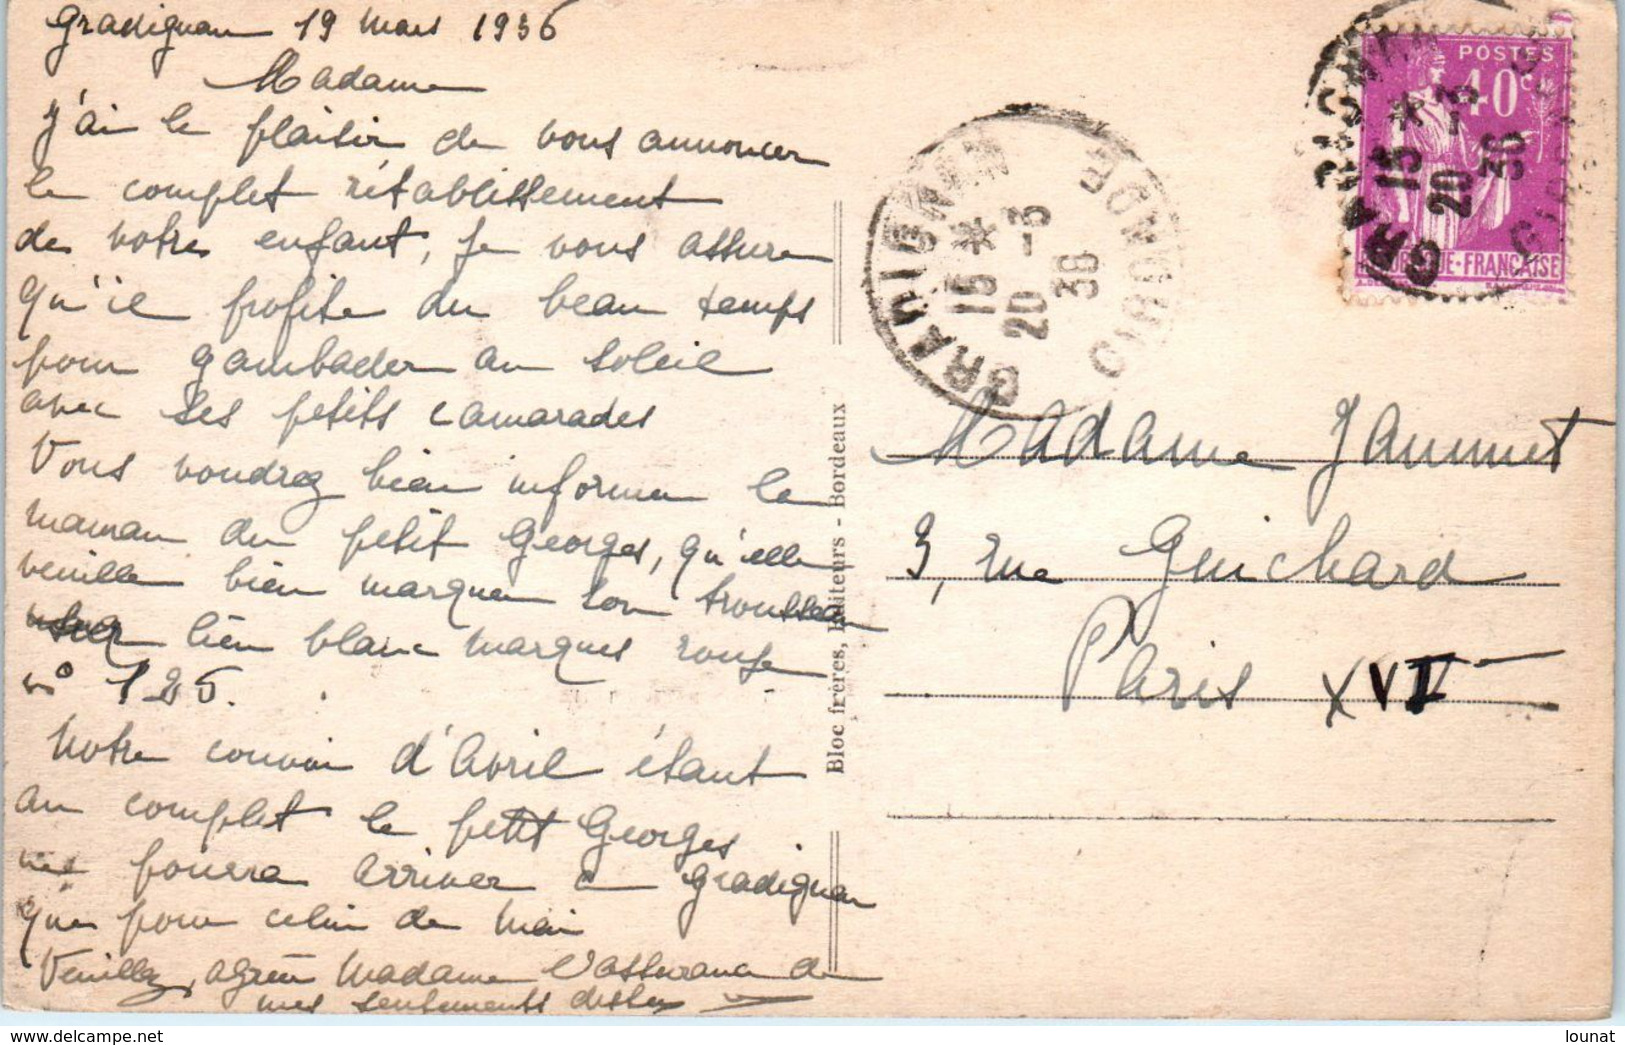 Gradignan 19 Mars 1936
Madame
J'ai le plaisir de vous annoncer
le complet rétablissement
de votre enfant, je vous assure
qu'il profite du beau temps
pour gambader au soleil
avec ses petits camarades
Vous voudrez bien informer la
maman du petit Georges, qu'elle
veuille bien marquer son trousseau
bien blanc marques rouge
n° 125.
Notre convoi d'Avril étant
au complet le petit Georges
ne pourra arriver à Gradignan
que pour celui de Mai
Veuillez, agréer Madame l'assurance de
mes sentements
Bloc frères, Editeurs - Bordeaux
GRADIGNAN GIRONDE
15 *
20 -3
36
POSTES
40c
GRADIGNAN GIRONDE
15 *
20 -3
36
REPUBLIQUE-FRANÇAISE
Madame Jaumet
3, rue Guichard
Paris XVI
lounat
delcampe.net